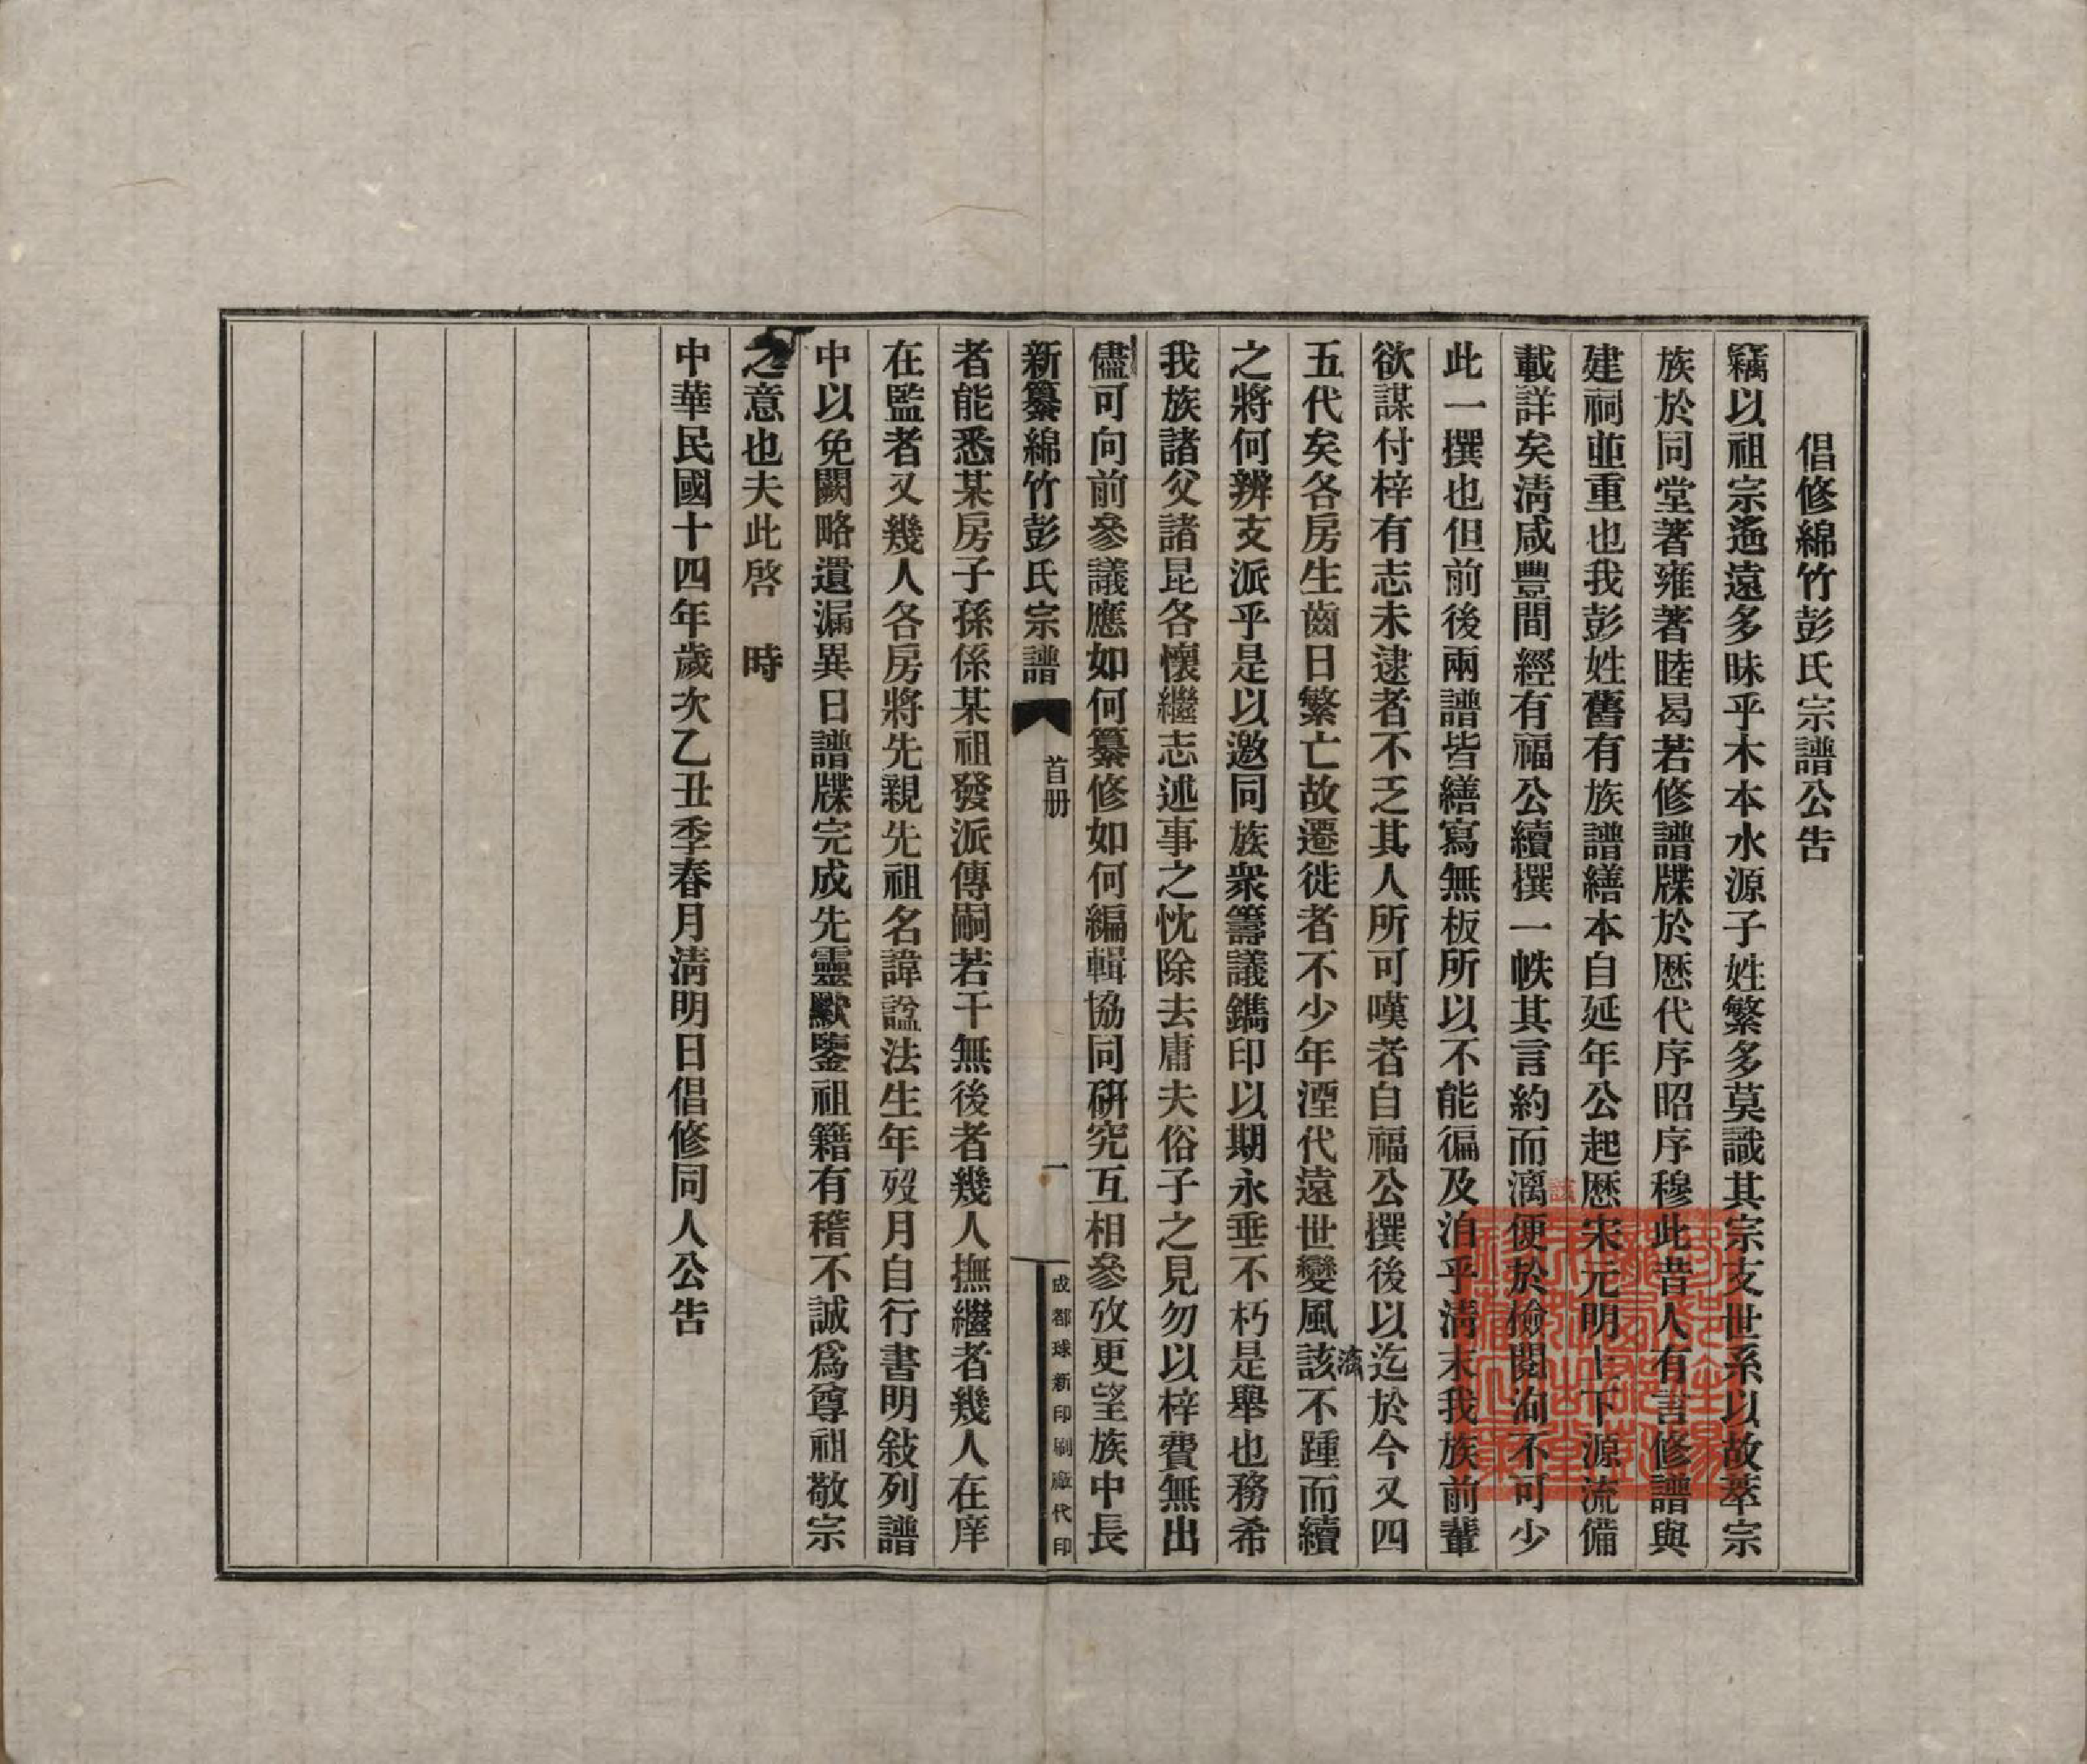 倡修綿竹彭氏宗譜公告
竊以祖宗遙遠多昧乎木本水源子姓繁多莫識其宗支世系以故萃宗
族於同堂著雍著睦曷若修譜牒於歷代序昭序穆此昔人有言修譜與
建祠並重也我彭姓舊有族譜繕本自延年公起歷宋元明上下源流備
載詳矣淸咸豐間經有福公續撰一帙其言約而漓便於檢閱洵不可少
該
此一撰也但前後兩譜皆繕寫無板所以不能徧及洎乎淸末我族前輩
欲謀付梓有志未逮者不乏其人所可嘆者自福公撰後以迄於今又四
五代矣各房生齒日繁亡故遷徙者不少年湮代遠世變風該不踵而續
漓
之將何辨支派乎是以邀同族衆籌議鐫印以期永垂不朽是舉也務希
我族諸父諸昆各懷繼志述事之忱除去庸夫俗子之見勿以梓費無出
儘可向前參議應如何纂修如何編輯協同硏究互相參攷更望族中長
新纂綿竹彭氏宗譜 首册 一 成都球新印刷廠代印
者能悉某房子孫係某祖發派傳嗣若干無後者幾人撫繼者幾人在庠
在監者又幾人各房將先親先祖名諱諡法生年歿月自行書明敍列譜
中以免闕略遺漏異日譜牒完成先靈默鑒祖籍有稽不誠爲尊祖敬宗
之意也夫此啓 時
中華民國十四年歲次乙丑季春月淸明日倡修同人公告